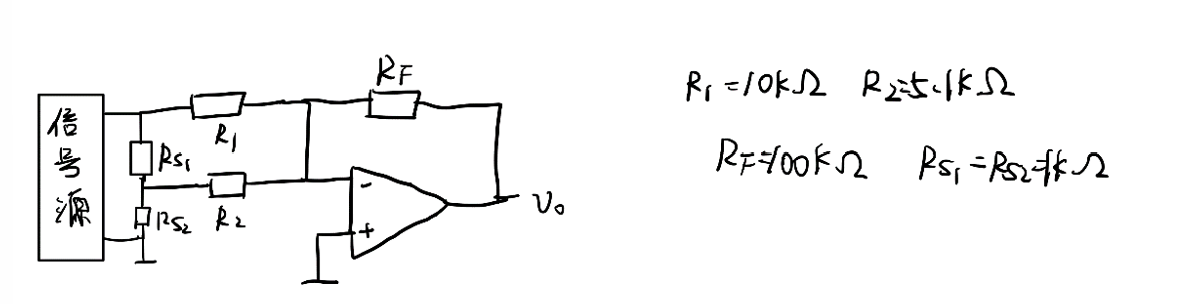 信号源
R₁
Rs₁
Rs₂
R₂
RF
-
+
υ₀
R₁=10kΩ R₂=5.1kΩ
RF=100kΩ Rs₁=Rs₂=1kΩ